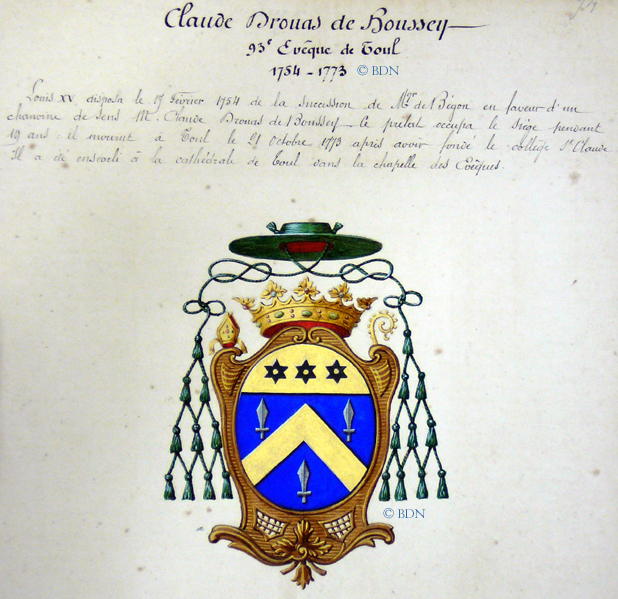 Claude Drouas de Boussey
93e Evêque de Toul
1754 - 1773 © BDN
Louis XV disposa le 17 Février 1754 de la succession de Mgr de Bégon en faveur d'un
chanoine de Sens M. Claude Drouas de Boussey - le prélat occupa le siège pendant
19 ans : il mourut à Toul le 21 Octobre 1773 après avoir fondé le collège St Claude
Il a été enseveli à la cathédrale de Toul dans la chapelle des Evêques.
© BDN